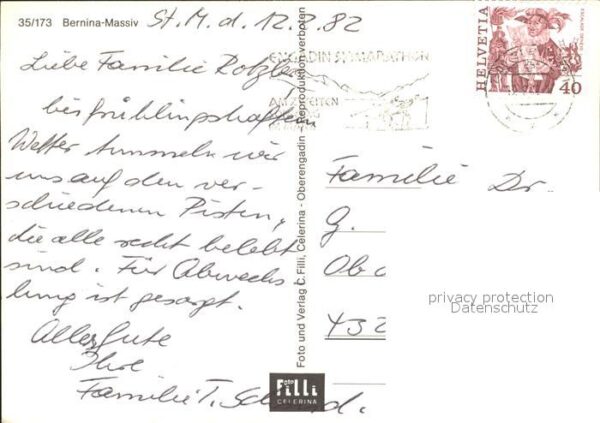 35/173 Bernina-Massiv
St. M. d. 12.2.82
Liebe Familie Rotzler
bei frühlingshaftem
Wetter tummeln wir
uns auf den ver-
schiedenen Pisten,
die alle recht belebt
sind. Für Abwechs-
lung ist gesorgt.
Alles Gute
Ihre
Familie T.
Foto und Verlag C. Filli, Celerina - Oberengadin Reproduktion verboten
ENGADIN SKIMARATHON
AM ZWEITEN
HELVETIA
40
Familie Dr.
G.
Ob
432
privacy protection
Datenschutz
Foto
Filli
CELERINA